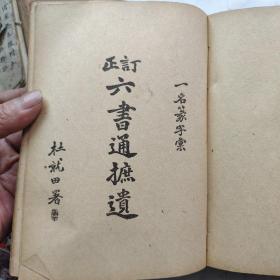 一名篆字彙
訂正
六書通摭遺
杜就田署